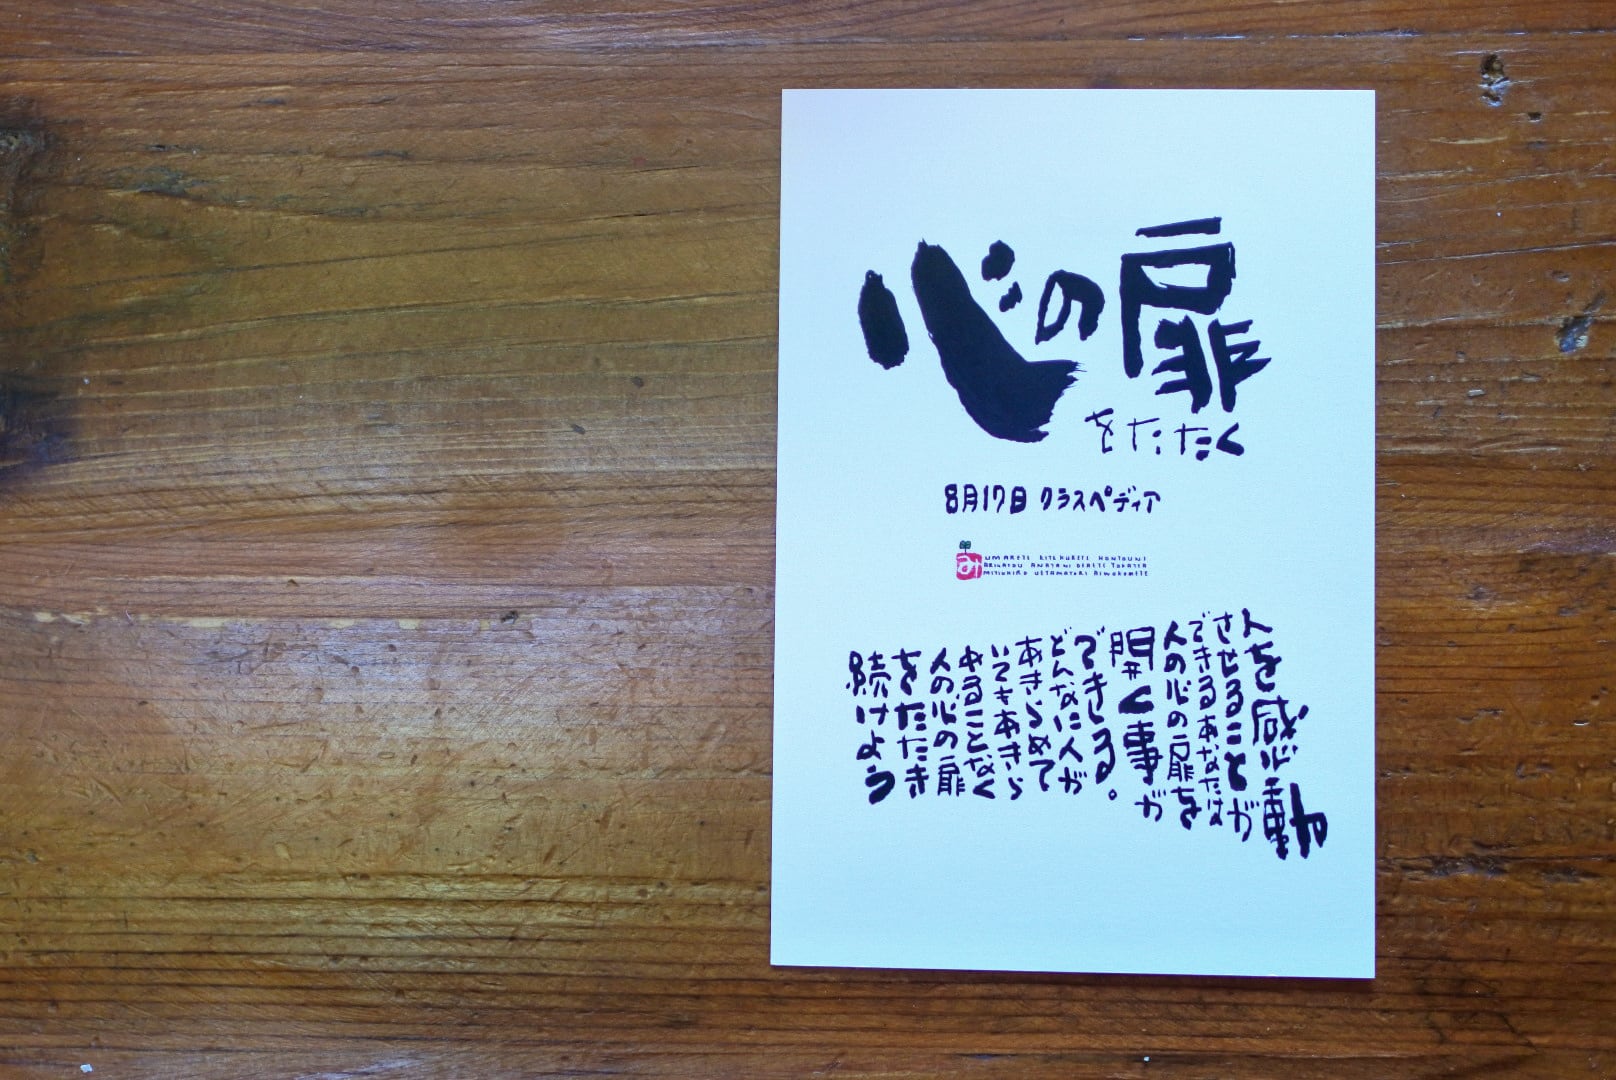 心の扉
をたたく
8月17日 クラスペディア
み
UMARETE KITEKURETE HONTOUNI
ARIGATOU ANATANI DEAETE YOKATTA
MITIHIRO UETAMATURI AIWOKOMETE
人を感動
させることが
できるあなたは
人の心の扉を
開く事が
できる。
どんなに人が
あきらめて
いてもあきら
めることなく
人の心の扉
をたたき
続けよう